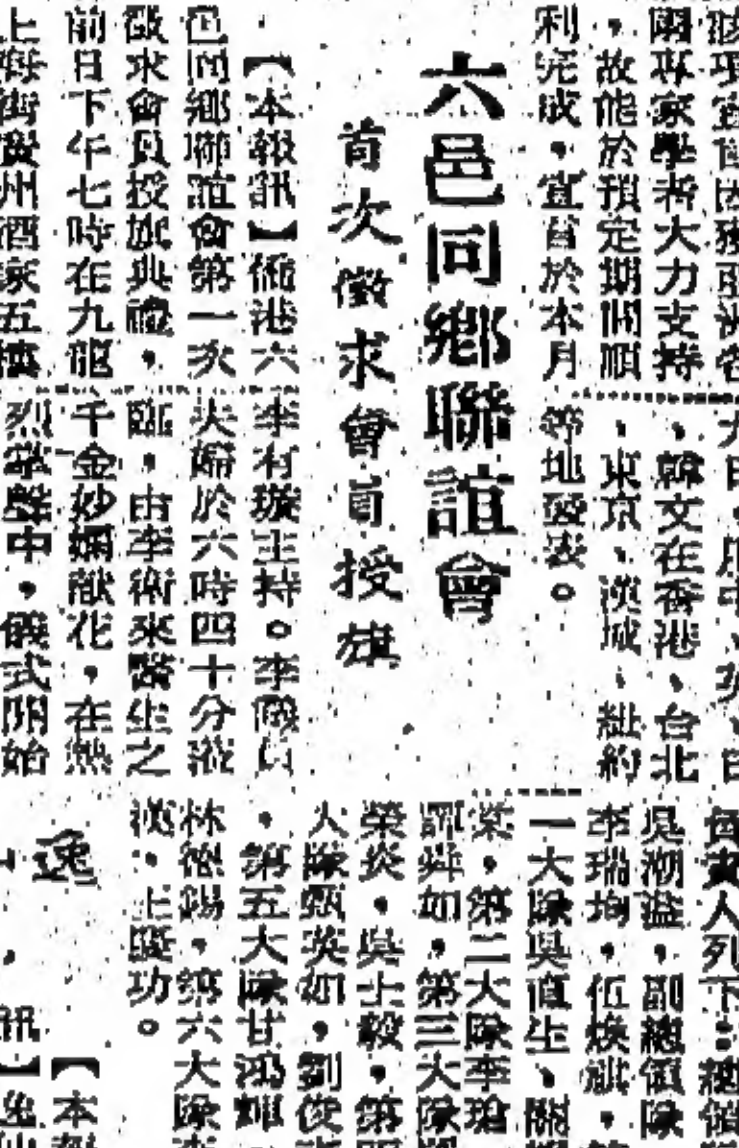 兩專家學者大力支持
，故能於預定期間順
利完成，宣言於本月
、韓文在香港、台北
、東京、漢城、紐約
等地發表。
六邑同鄉聯誼會
首次徵求會員授旗
【本報訊】僑港六
邑同鄉聯誼會第一次
徵求會員授旗典禮，
前日下午七時在九龍
上海街廣州酒家五樓
李有璇主持。李議員
夫婦於六時四十分蒞
臨，由李衍來醫生之
千金妙嫻献花，在熱
烈掌聲中，儀式開始
責人列下：總
吳潮溢，副總領隊
李瑞均，伍煥旒，
一大隊吳直生、關
棠，第二大隊李
譚舜如，第三大隊
榮炎，吳士毅，第
大隊甄英如，劉俊
，第五大隊甘鴻輝
林德錫，第六大隊
漢，上慶功。
逸
【本
訊】